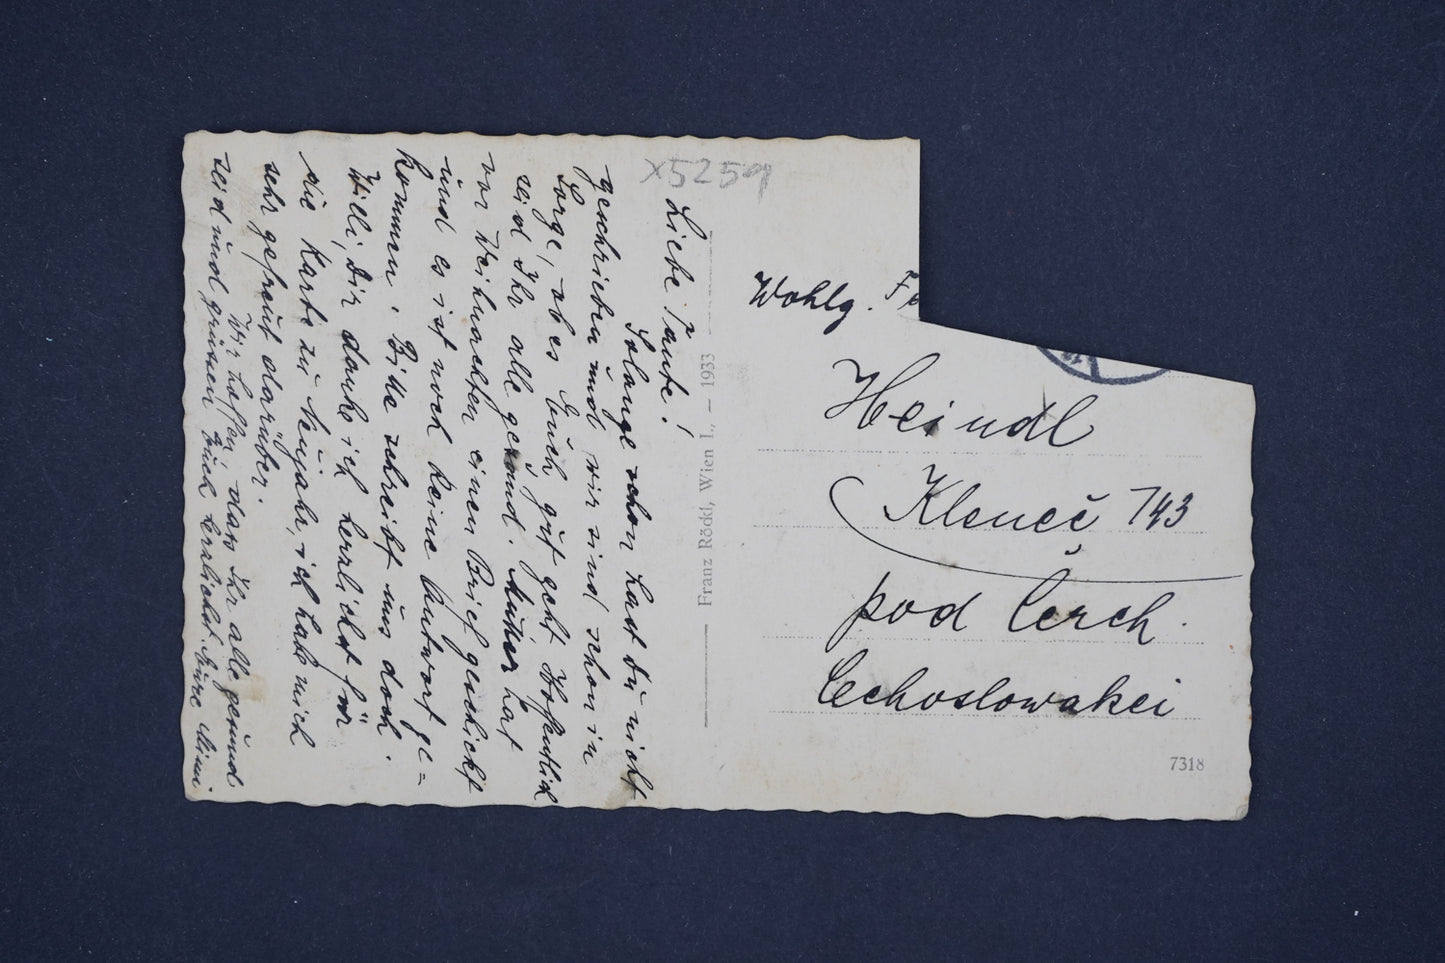 x5259
Liebe Tante!
Solange schon hast du nicht
geschrieben und wir sind schon in
Sorge, ob es Euch gut geht. Hoffentlich
seid Ihr alle gesund. Mutter hat
vor Weihnachten einen Brief geschickt
und es ist noch keine Antwort ge=
kommen. Bitte schreibt uns doch.
Willi, Dir danke ich herzlichst für
die Karte zu Neujahr, ich habe mich
sehr gefreut darüber.
Wir hoffen, dass Ihr alle gesund
seid und grüssen Euch herzlichst Eure Mimi
Franz Rödd, Wien I., – 1933
Wohlg. Fr
Heindl
Klenec̆ 743
pod C̆erch.
C̆echoslowakei
7318